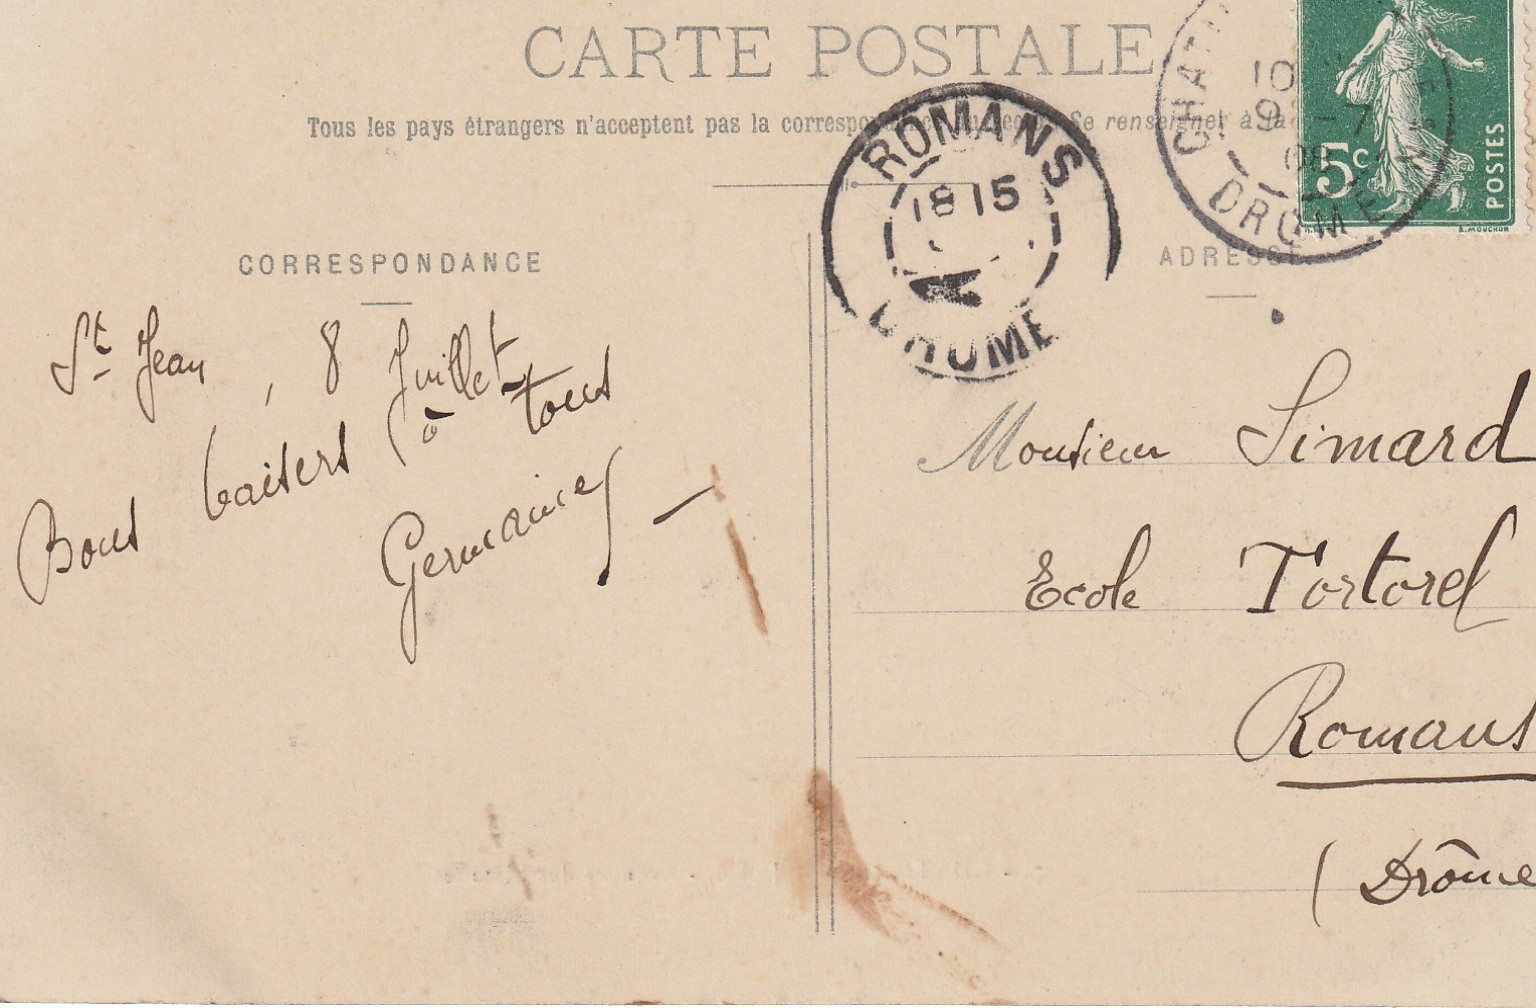 CARTE POSTALE
Tous les pays étrangers n'acceptent pas la Se renseigner à la
CORRESPONDANCE
ADRESSE
ROMANS
18 15
DROME
10
9 -7
08
DROME
5c
POSTES
E. MOUCHON
St Jean, 8 Juillet
Bons baisers à tous
Germaine
Monsieur Simard
Ecole Tortorel
Romans
(Drôme